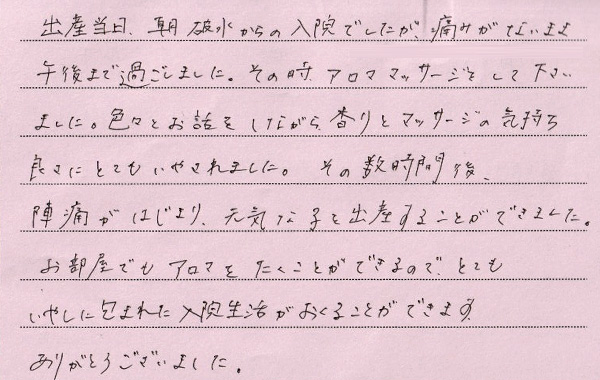 出産当日、朝破水からの入院でしたが、痛みがないまま
午後まで過ごしました。その時、アロママッサージをして下さい
ました。色々とお話をしながら、香りとマッサージの気持ち
良さにとてもいやされました。その数時間後、
陣痛がはじまり、元気な子を出産することができました。
お部屋でもアロマをたくことができるので、とても
いやしに包まれた入院生活がおくることができます。
ありがとうございました。